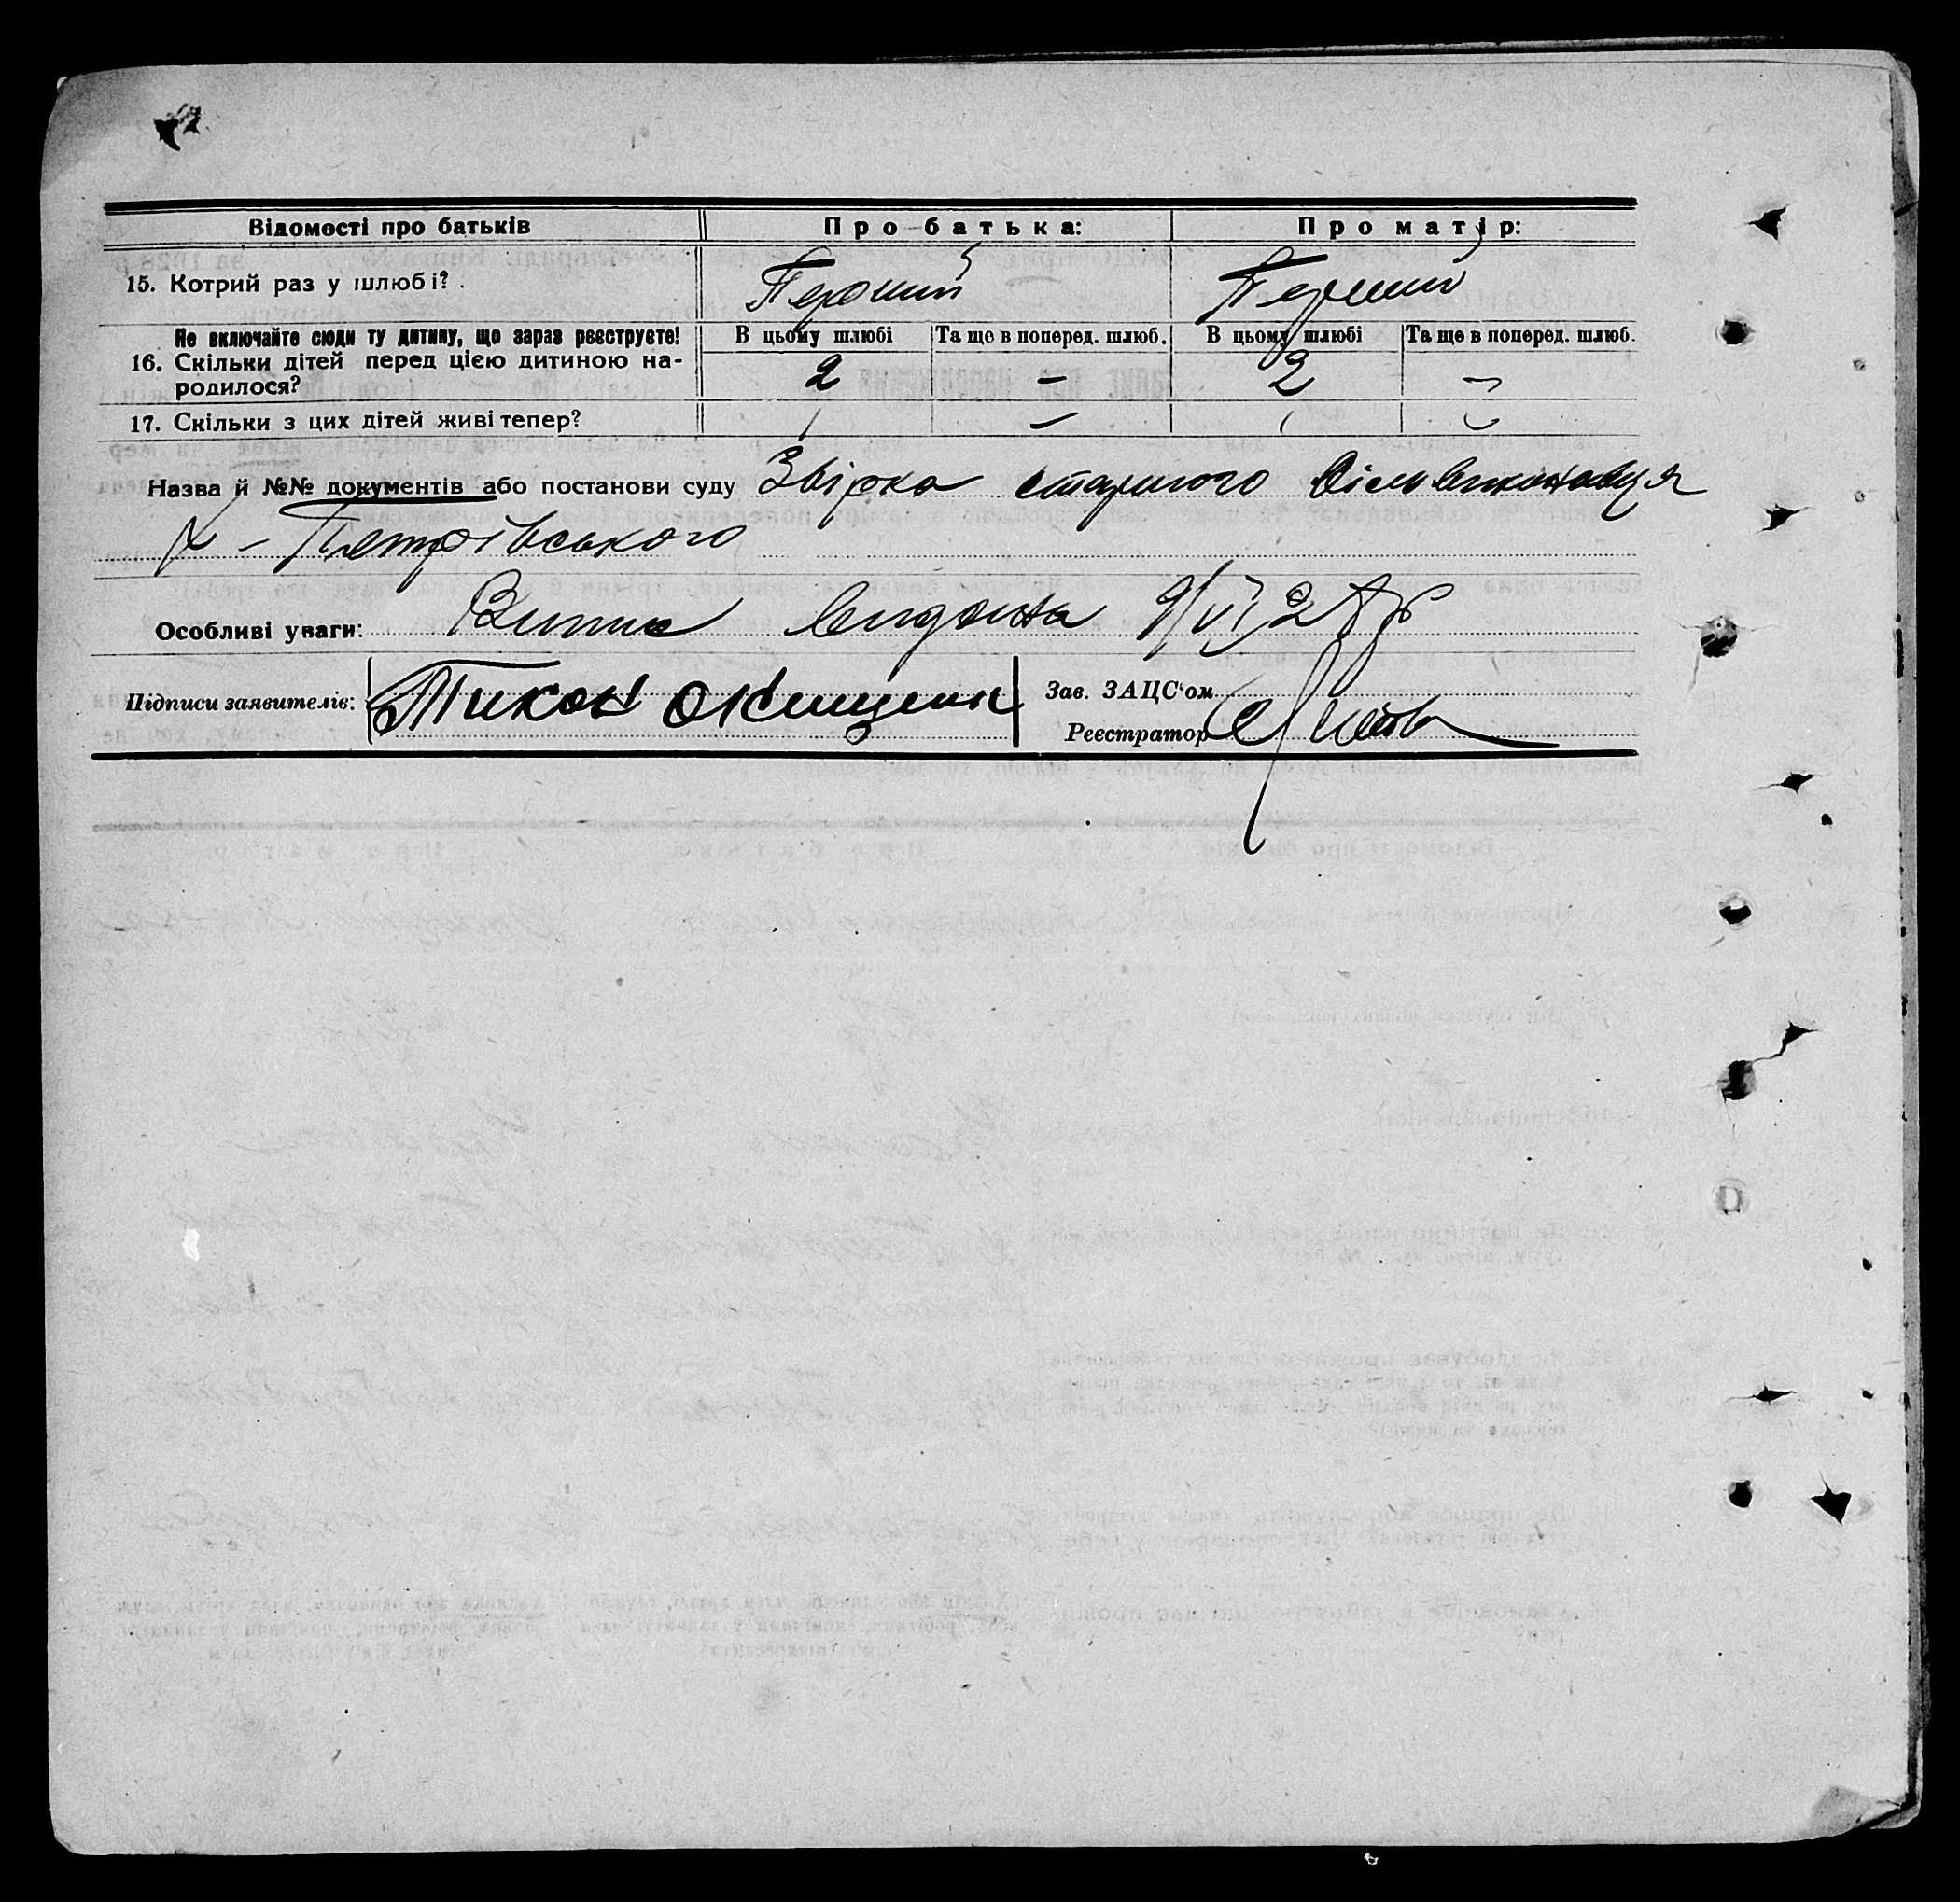 Відомості про батьків Про батька: Про матір:
15. Котрий раз у шлюбі? . Перший Перший
Не включайте сюди ту дитину, що зараз реєструєте! В цьому шлюбі Та ще в поперед. шлюб. В цьому шлюбі Та ще в поперед. шлюб.
16. Скільки дітей перед цією дитиною на-
родилося? 2 – 2 –
17. Скільки з цих дітей живі тепер? 1 – 1 –
Назва й №№ документів або постанови суду Звірка старшого Вільвиконавця
х – Петрівського
Особливі уваги: Випис видана 9/VI 28 р
Підписи заявителів: Тихон Онищенк
Зав. ЗАЦС'ом
Реєстратор